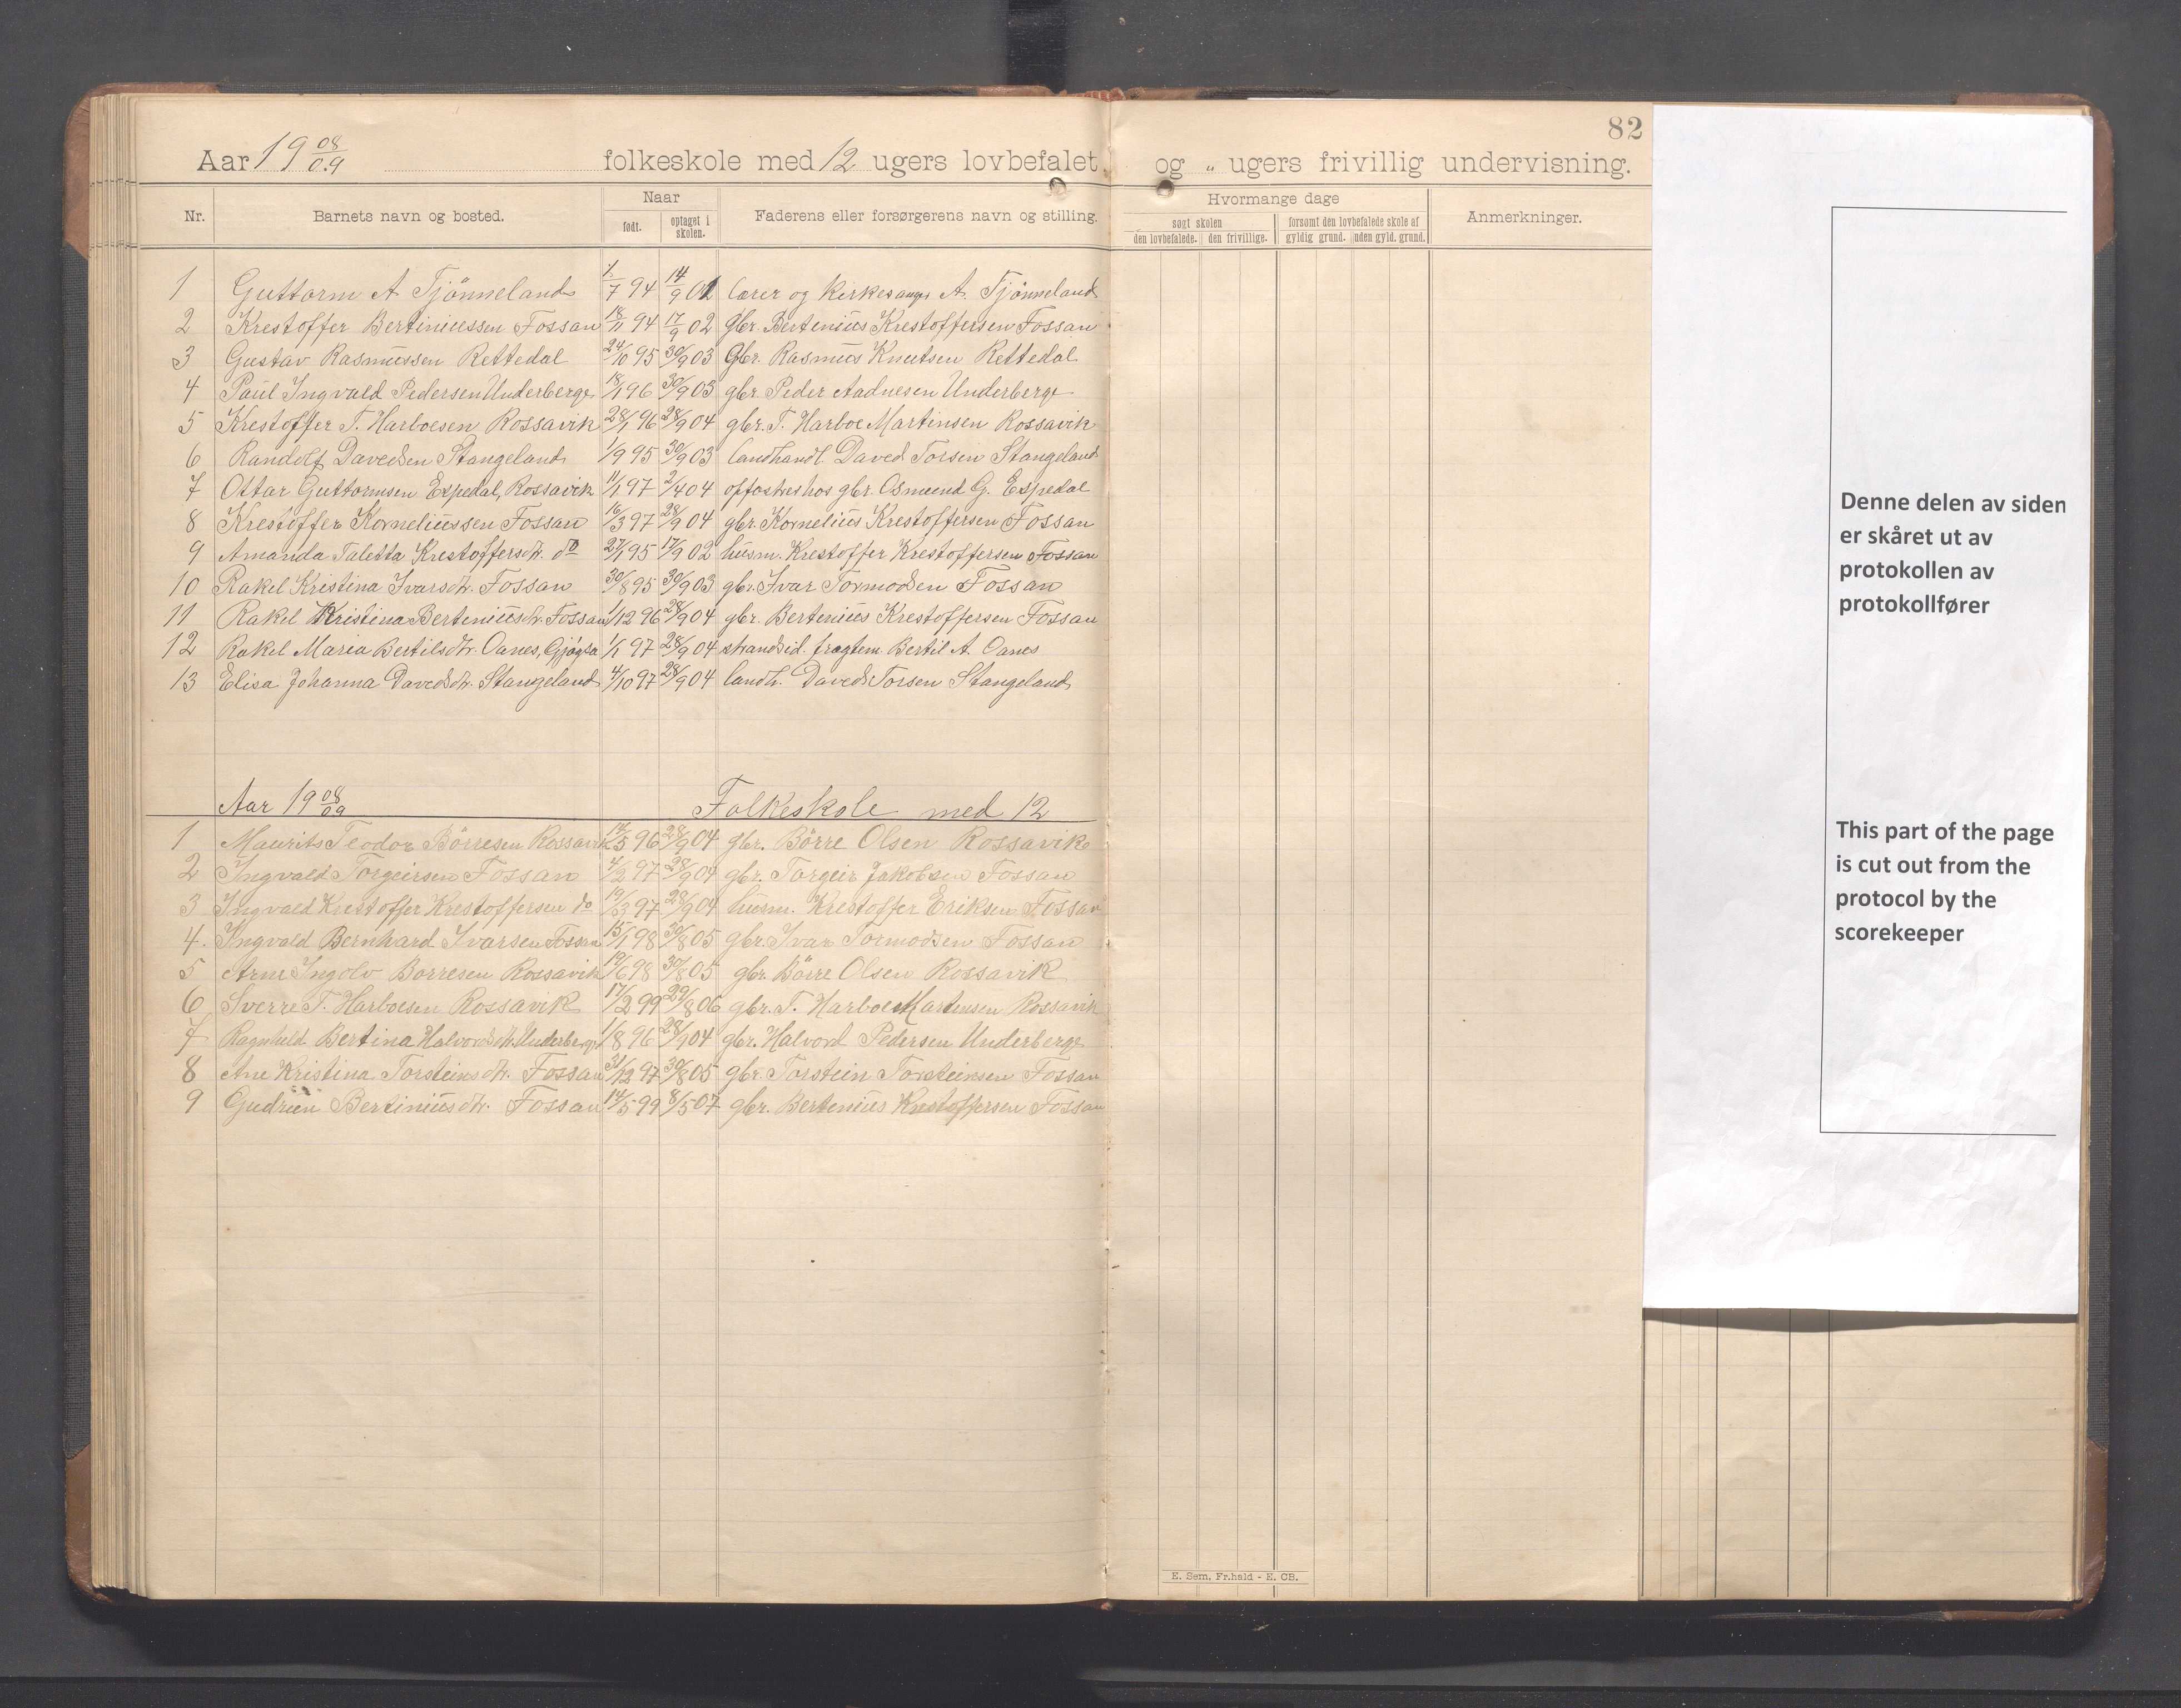 82
Aar 19 08/09 folkeskole med 12 ugers lovbefalet og „ ugers frivillig undervisning.
Nr. Barnets navn og bosted. Naar født. optaget i skolen. Faderens eller forsørgerens navn og stilling. Hvormange dage søgt skolen den lovbefalede. den frivillige. forsømt den lovbefalede skole af gyldig grund. uden gyld. grund. Anmerkninger.
1 Guttorm A Tjönneland 1/7 94 14/9 01 lærer og Kirkesanger A. Tjönneland
2 Krestoffer Bertiniussen Fossan 18/11 94 17/9 02 Gbr. Bertenius Krestoffersen Fossan
3 Gustav Rasmussen Rettedal 24/10 95 30/9 03 Gbr. Rasmus Knutsen Rettedal
4 Paul Ingvald Pedersen Underberge 18/1 96 30/9 03 gbr. Peder Aadnesen Underberge
5 Krestoffer T. Harboesen Rossavik 28/1 96 28/9 04 gbr. T. Harboe Martinsen Rossavik
6 Randolf Davedsen Stangeland 1/9 95 30/9 03 landhandl. Daved Torsen Stangeland
7 Ottar Guttormsen Espedal, Rossavik 11/1 97 2/4 04 opfostres hos gbr. Osmund G. Espedal
8 Krestoffer Korneliussen Fossan 16/3 97 28/9 04 gbr. Kornelius Krestoffersen Fossan
9 Amanda Taletta Krestoffersdtr. do 27/1 95 17/9 02 husm. Krestoffer Krestoffersen Fossan
10 Rakel Kristina Ivarsdtr. Fossan 30/8 95 30/9 03 gbr. Ivar Tormodsen Fossan
11 Rakel Kristina Berteniusdtr. Fossan 1/12 96 28/9 04 gbr. Bertenius Krestoffersen Fossan
12 Rakel Maria Bertilsdtr. Oanes, 1/1 97 28/9 04 strandsid. fragtem. Bertil A. Oanes
13 Elisa Johanna Davedsdtr. Stangeland 4/10 97 28/9 04 landh. Daved Torsen Stangeland
Aar 19 08/09 Folkeskole med 12
1 Maurits Teodor Börresen Rossavik 14/5 96 28/9 04 gbr. Börre Olsen Rossavik
2 Ingvald Torgeirsen Fossan 4/2 97 28/9 04 gbr. Torgeir Jakobsen Fossan
3 Ingvald Krestoffer Krestoffersen do 19/3 97 28/9 04 husm. Krestoffer Eriksen Fossan
4. Ingvald Bernhard Ivarsen Fossan 15/1 98 30/8 05 gbr. Ivar Tormodsen Fossan
5 Arne Ingolv Borresen Rossavik 19/6 98 30/8 05 gbr. Börre Olsen Rossavik
6 Sverre T. Harboesen Rossavik 17/2 99 29/8 06 gbr. T. Harboe Martinsen Rossavik
7 Ragnhild Bertina Halvordsdtr. Underberge 1/8 96 28/9 04 gbr. Halvord Pedersen Underberge
8 Ane Kristina Torsteinsdtr. Fossan 31/12 97 30/8 05 gbr. Torstein Torsteinsen Fossan
9 Gudrun Bertiniusdtr. Fossan 14/5 99 8/5 07 gbr. Bertenius Krestoffersen Fossan
E. Sem, Fr.hald - E. CB.
Denne delen av siden
er skåret ut av
protokollen av
protokollfører
This part of the page
is cut out from the
protocol by the
scorekeeper